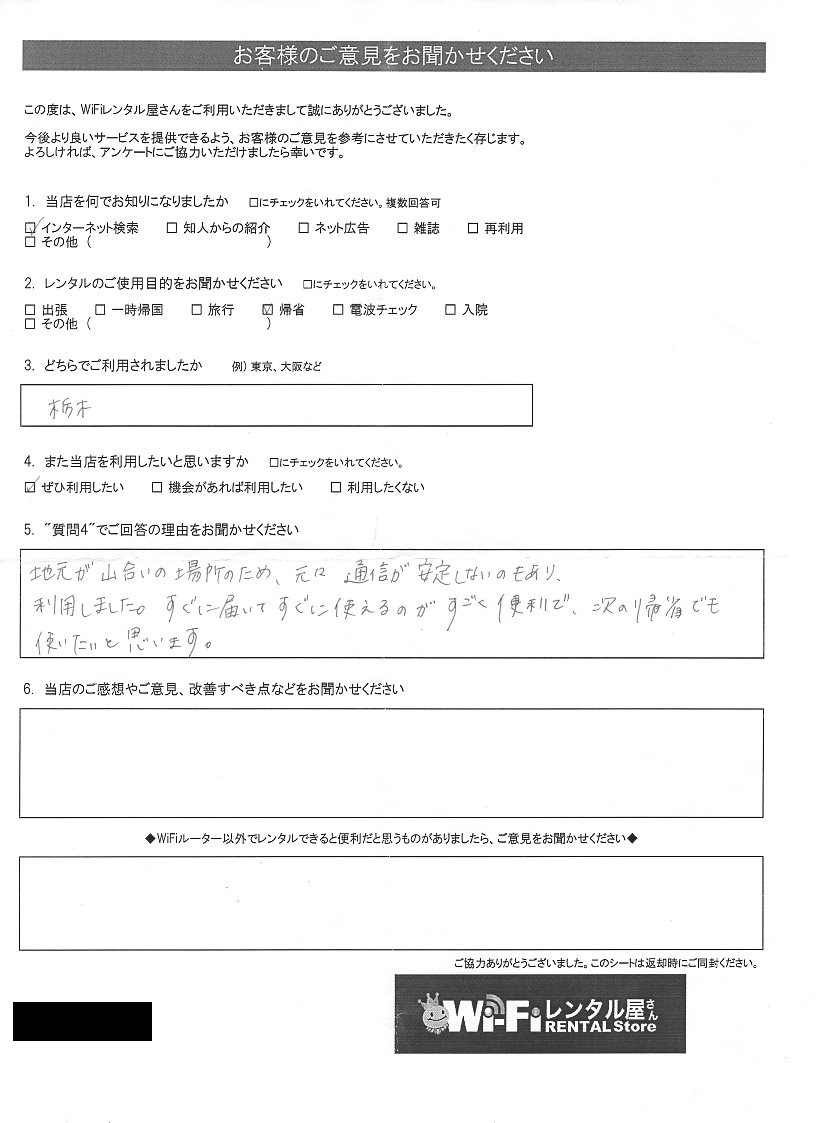 お客様のご意見をお聞かせください
この度は、WiFiレンタル屋さんをご利用いただきまして誠にありがとうございました。
今後より良いサービスを提供できるよう、お客様のご意見を参考にさせていただきたく存じます。
よろしければ、アンケートにご協力いただけましたら幸いです。
1. 当店を何でお知りになりましたか □にチェックをいれてください。複数回答可
☑ インターネット検索 □ 知人からの紹介 □ ネット広告 □ 雑誌 □ 再利用
□ その他 ( )
2. レンタルのご使用目的をお聞かせください □にチェックをいれてください。
□ 出張 □ 一時帰国 □ 旅行 ☑ 帰省 □ 電波チェック □ 入院
□ その他 ( )
3. どちらでご利用されましたか 例) 東京、大阪など
栃木
4. また当店を利用したいと思いますか □にチェックをいれてください。
☑ ぜひ利用したい □ 機会があれば利用したい □ 利用したくない
5. "質問4"でご回答の理由をお聞かせください
地元が山合いの場所のため、元々 通信が安定しないのもあり、
利用しました。すぐに届いてすぐに使えるのがすごく便利で、次の帰省でも
使いたいと思います。
6. 当店のご感想やご意見、改善すべき点などをお聞かせください
◆WiFiルーター以外でレンタルできると便利だと思うものがありましたら、ご意見をお聞かせください◆
ご協力ありがとうございました。このシートは返却時にご同封ください。
Wi-Fiレンタル屋さん
RENTAL Store